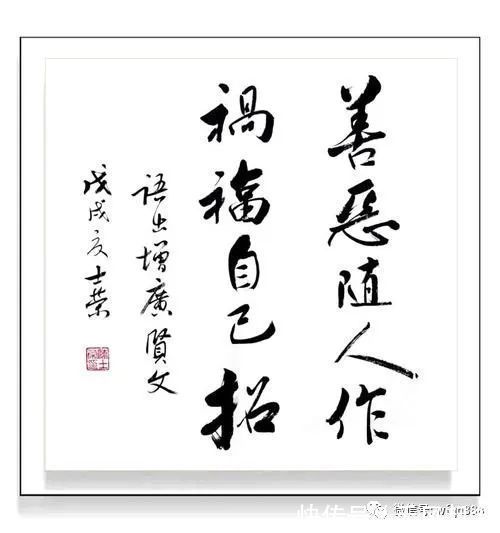 善惡随人作
禍福自己招
语出增廣賢文
戊戌夏士荣
微信号